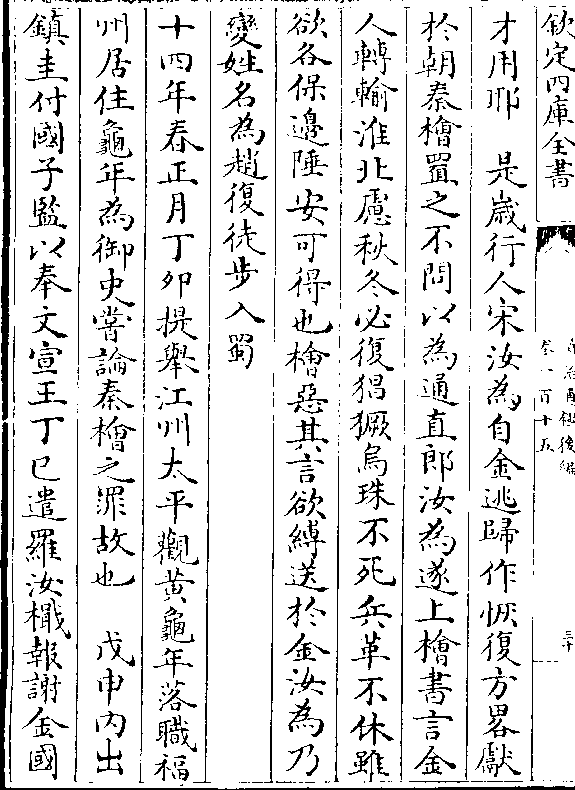 欽定四庫全書
卷一百十五
才用耶　是嵗行人宋汝為自金逃歸作恢復方畧獻
於朝秦檜置之不問以為通直郎汝為遂上檜書言金
人轉輸淮北慮秋冬必復猖獗烏珠不死兵革不休雖
欲各保邊陲安可得也檜惡其言欲縛送於金汝為乃
變姓名為趙復徒歩入蜀
十四年春正月丁夘提舉江州太平觀黄龜年落職福
州居住龜年為御史嘗論秦檜之罪故也　戊申内出
鎮圭付國子監以奉文宣王丁巳遣羅汝檝報謝金國